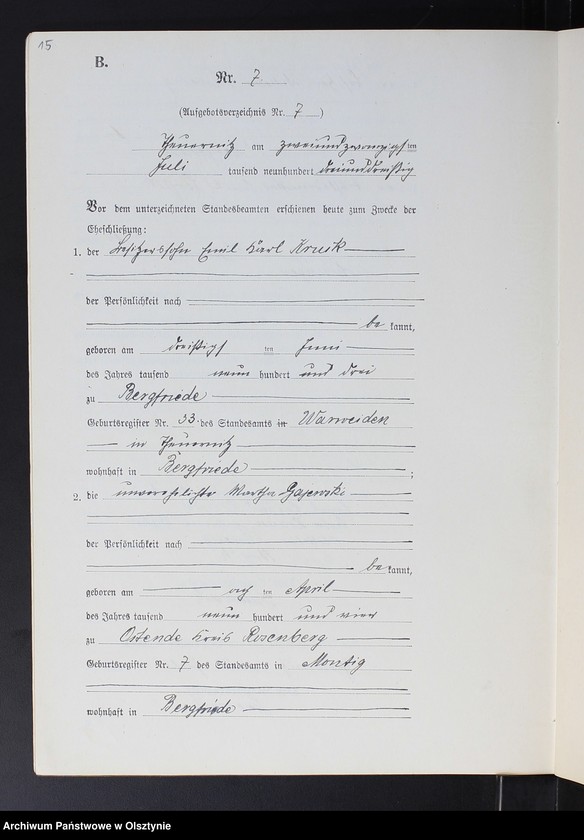 15
B.
Nr. 7
(Aufgebotsverzeichnis Nr. 7)
Theuernitz am zweiundzwanzigsten
Juli tausend neunhundert dreiunddreißig
Vor dem unterzeichneten Standesbeamten erschienen heute zum Zwecke der
Eheschließung:
1. der Besitzerssohn Emil Karl Krusk
der Persönlichkeit nach
be kannt,
geboren am dreißigsten Juni
des Jahres tausend neun hundert und drei
zu Bergfriede
Geburtsregister Nr. 33 des Standesamts in Warweiden
in Theuernitz
wohnhaft in Bergfriede ;
2. die unverehelichte Martha Gajewski
der Persönlichkeit nach
be kannt,
geboren am ten April
des Jahres tausend neun hundert und vier
zu Ostende Kreis Rosenberg
Geburtsregister Nr. 7 des Standesamts in Montig
wohnhaft in Bergfriede
Archiwum Państwowe w Olsztynie